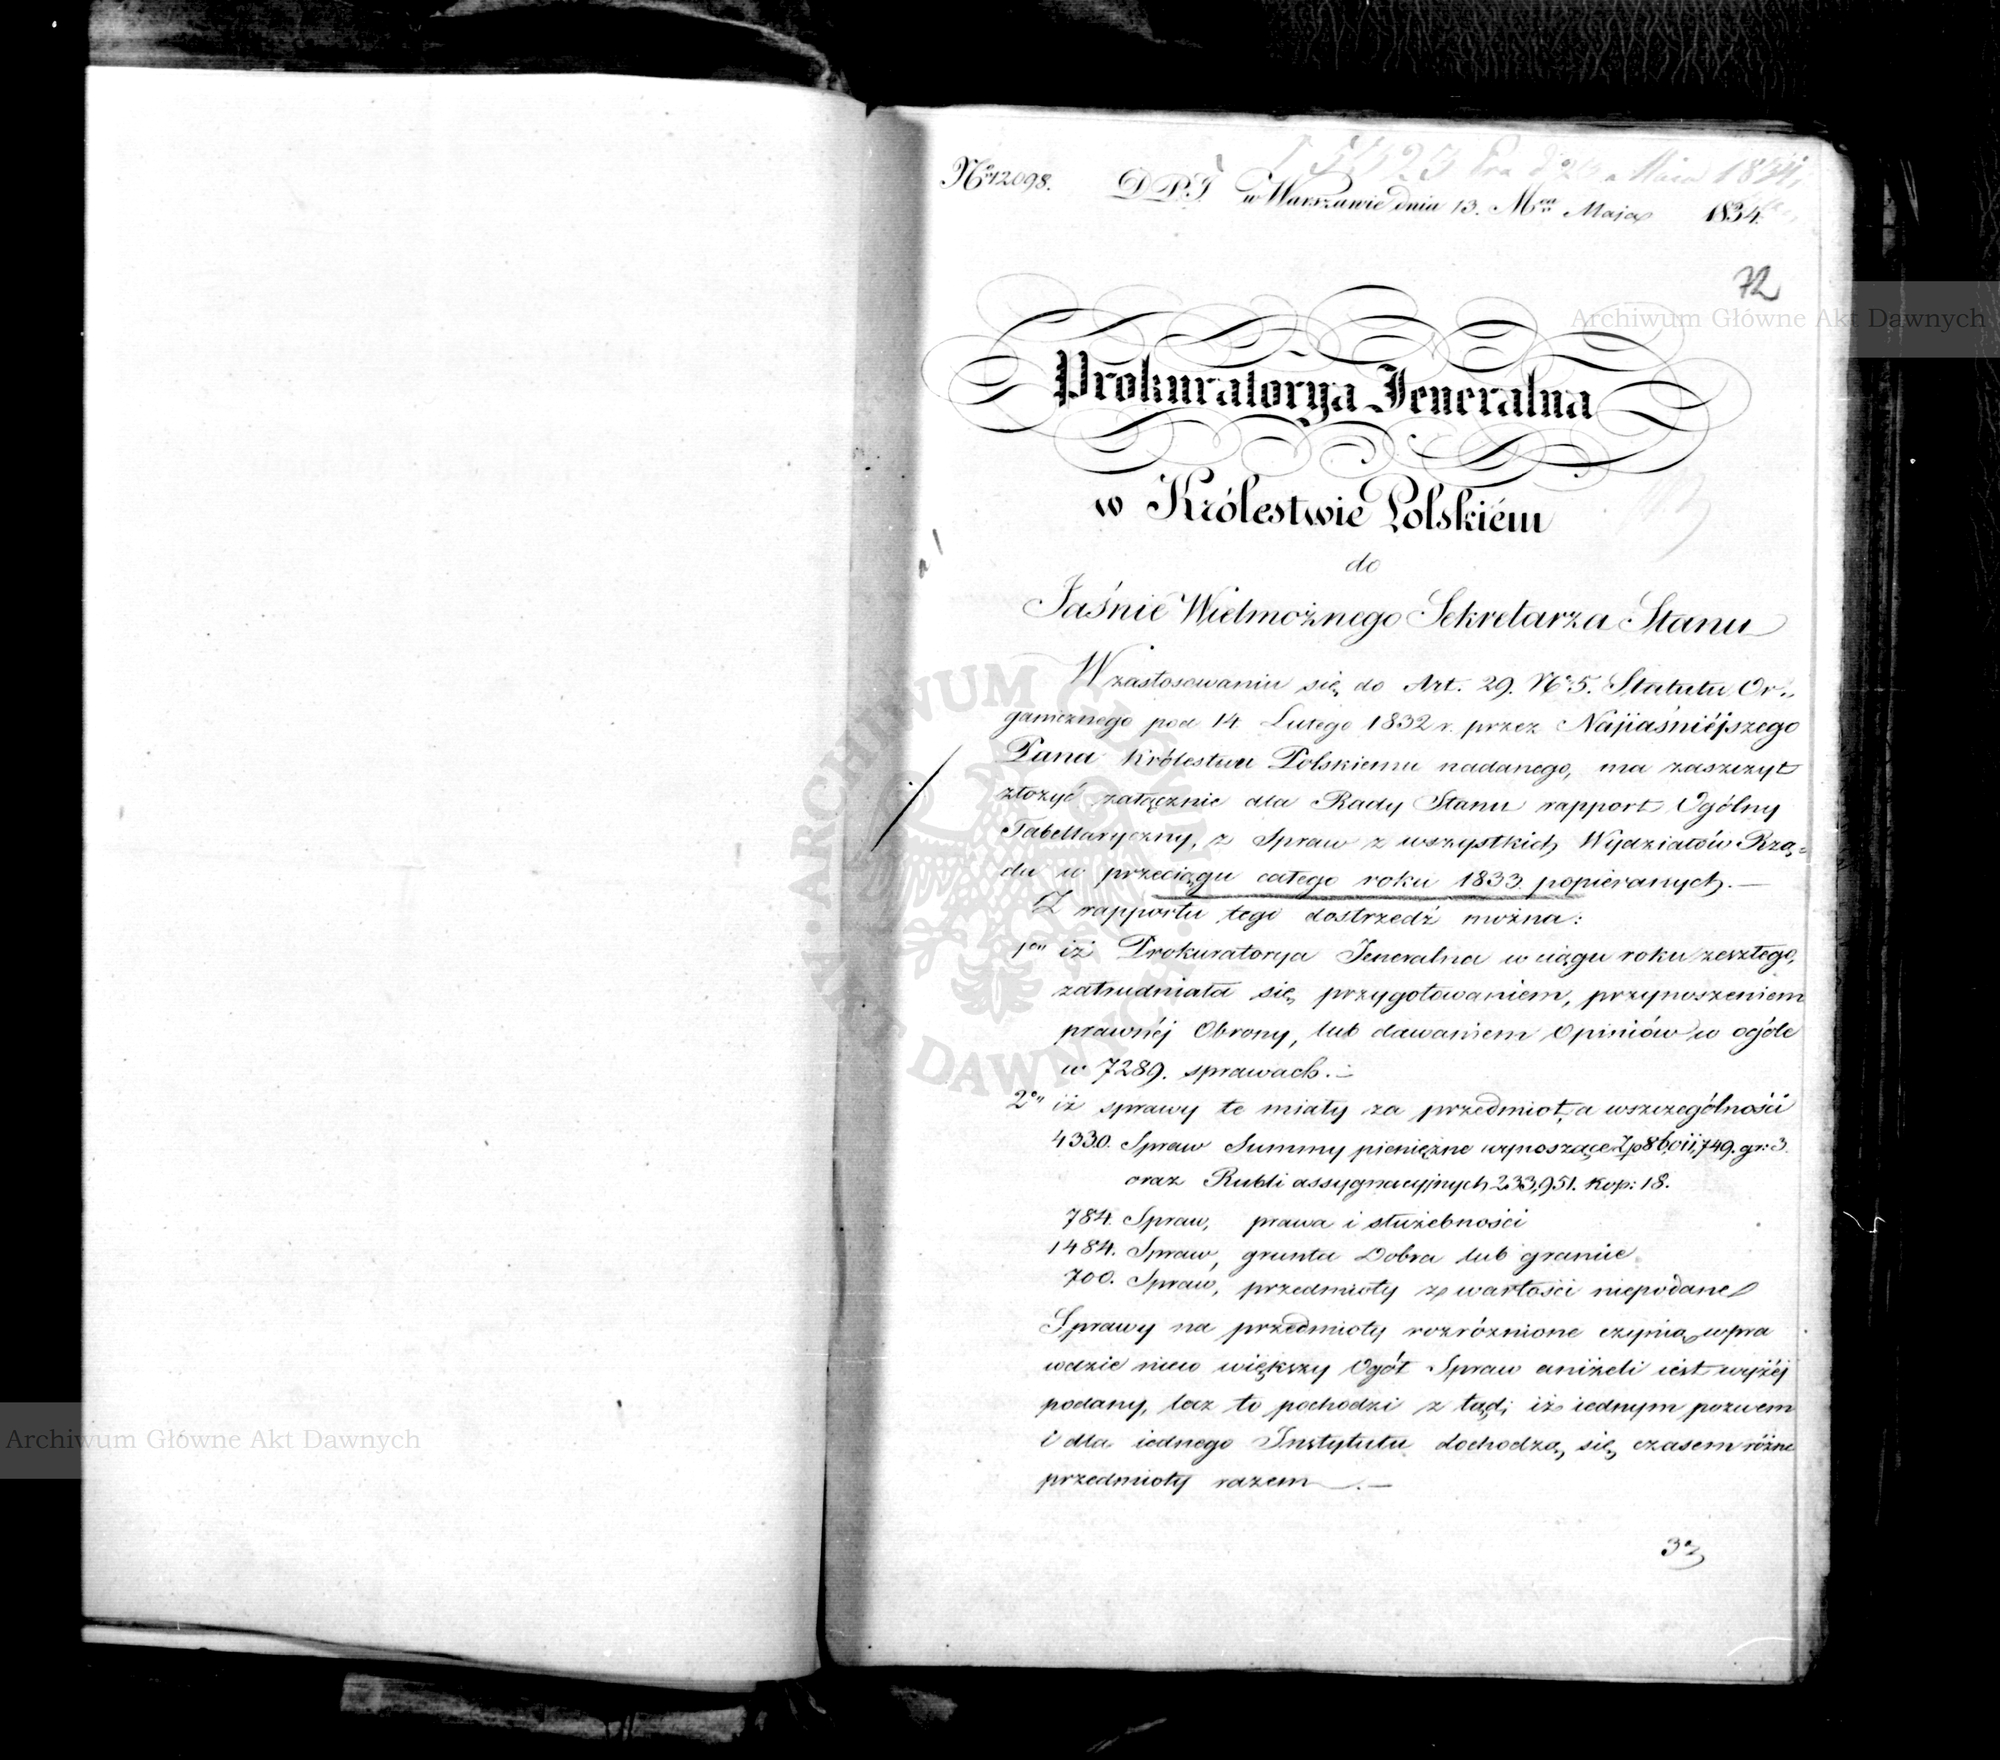 No 12098.
D P.J w Warszawie dnia 13. Mca Maja 1834.
72
Archiwum Główne Akt Dawnych
Prokuratorya Jeneralna
w Królestwie Polskiém
do
Jaśnie Wielmożnego Sekretarza Stanu
W zastosowaniu się do Art. 29. No 5. Statutu Or„
ganicznego pod 14 Lutego 1832 r. przez Najiaśniéjszego
Pana Królestwu Polskiemu nadanego, ma zaszczyt
złożyć załącznie dla Rady Stanu rapport Ogólny
Tabellaryczny, z Spraw z wszystkich Wydziałów Rzą„
du w przeciągu całego roku 1833. popiéranych.—
Z rapportu tego dostrzedź można:
1en iż Prokuratorya Jeneralna w ciągu roku zeszłego,
zatrudniała się przygotowaniem, przynoszeniem
prawnéj Obrony, lub dawaniem Opiniów w ogóle
w 7289. sprawach.—
2en iż sprawy te miały za przedmiot, a wszczególności
4330. Spraw Summy pieniężne wynoszące Zp 86,011,749. gr: 3.
oraz Rubli assygnacyjnych 233,951. kop: 18.
784. Spraw, prawa i służebności
1484. Spraw, grunta Dobra lub granice
700. Spraw, przedmioty z wartości niepodane
Sprawy na przedmioty rozróżnione czynią wpra
wdzie większy Ogół Spraw aniżeli iest wyżéj
podany, lecz to pochodzi z tąd, iż iednym pozwem
i dla iednego Instytutu dochodzą się czasem różne
przedmioty razem —.—
Archiwum Główne Akt Dawnych